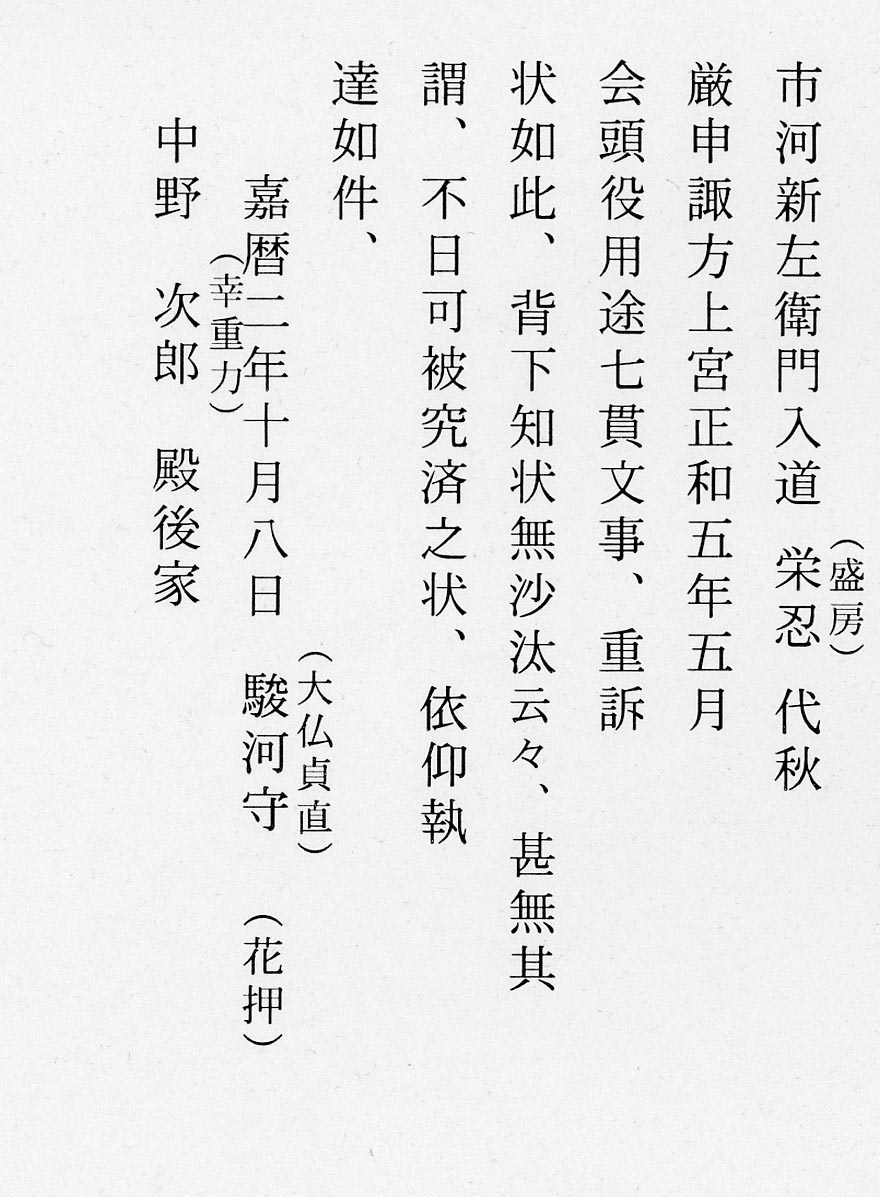 （盛房）
市河新左衛門入道　栄忍　代秋
厳申諏方上宮正和五年五月
会頭役用途七貫文事、重訴
状如此、背下知状無沙汰云々、甚無其
謂、不日可被究済之状、依仰執
達如件、
（大仏貞直）
嘉暦二年十月八日　駿河守　（花押）
（幸重力）
中野　次郎　殿後家